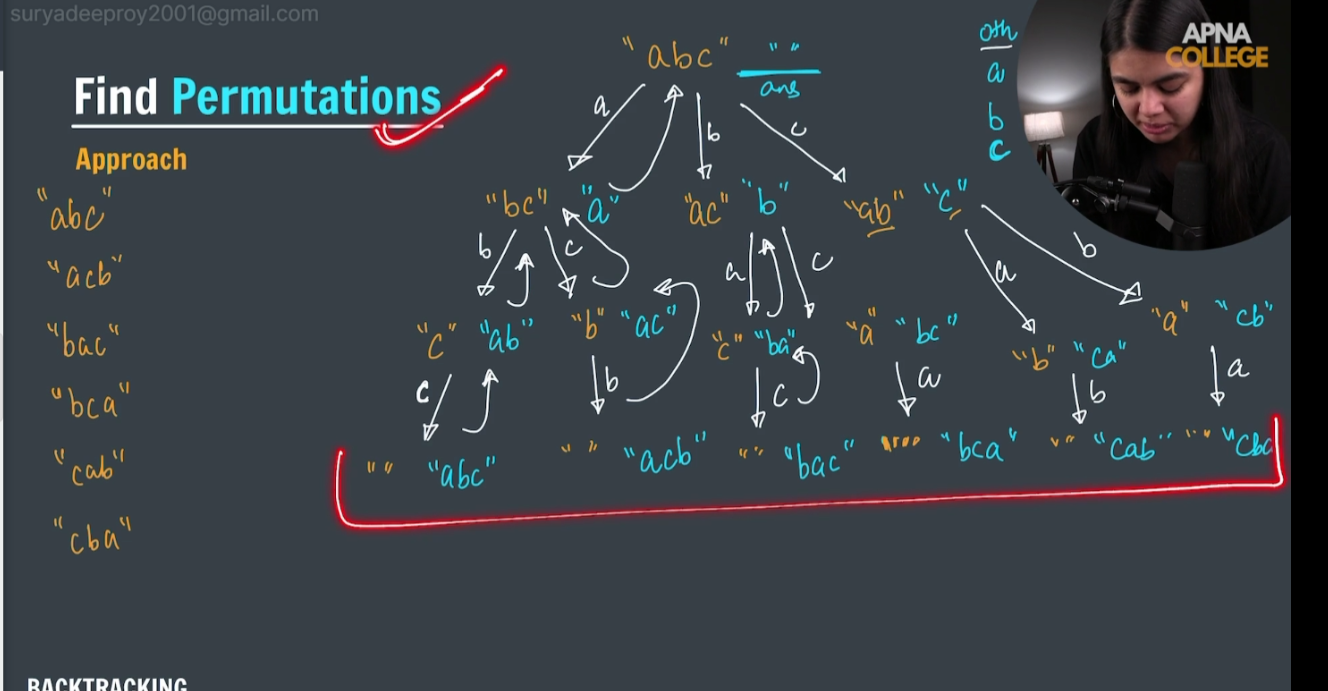 suryadeeproy2001@gmail.com
APNA
COLLEGE
Find Permutations
Approach
"abc" " "
ans
0th
a
b
c
a b c
"bc" "a" "ac" "b" "ab" "c"
b c a c a b
"c" "ab" "b" "ac" "c" "ba" "a" "bc" "b" "ca" "a" "cb"
c b c a b a
" " "abc" " " "acb" " " "bac" " " "bca" " " "cab" " " "cba
"abc"
"acb"
"bac"
"bca"
"cab"
"cba"
BACKTRACKING